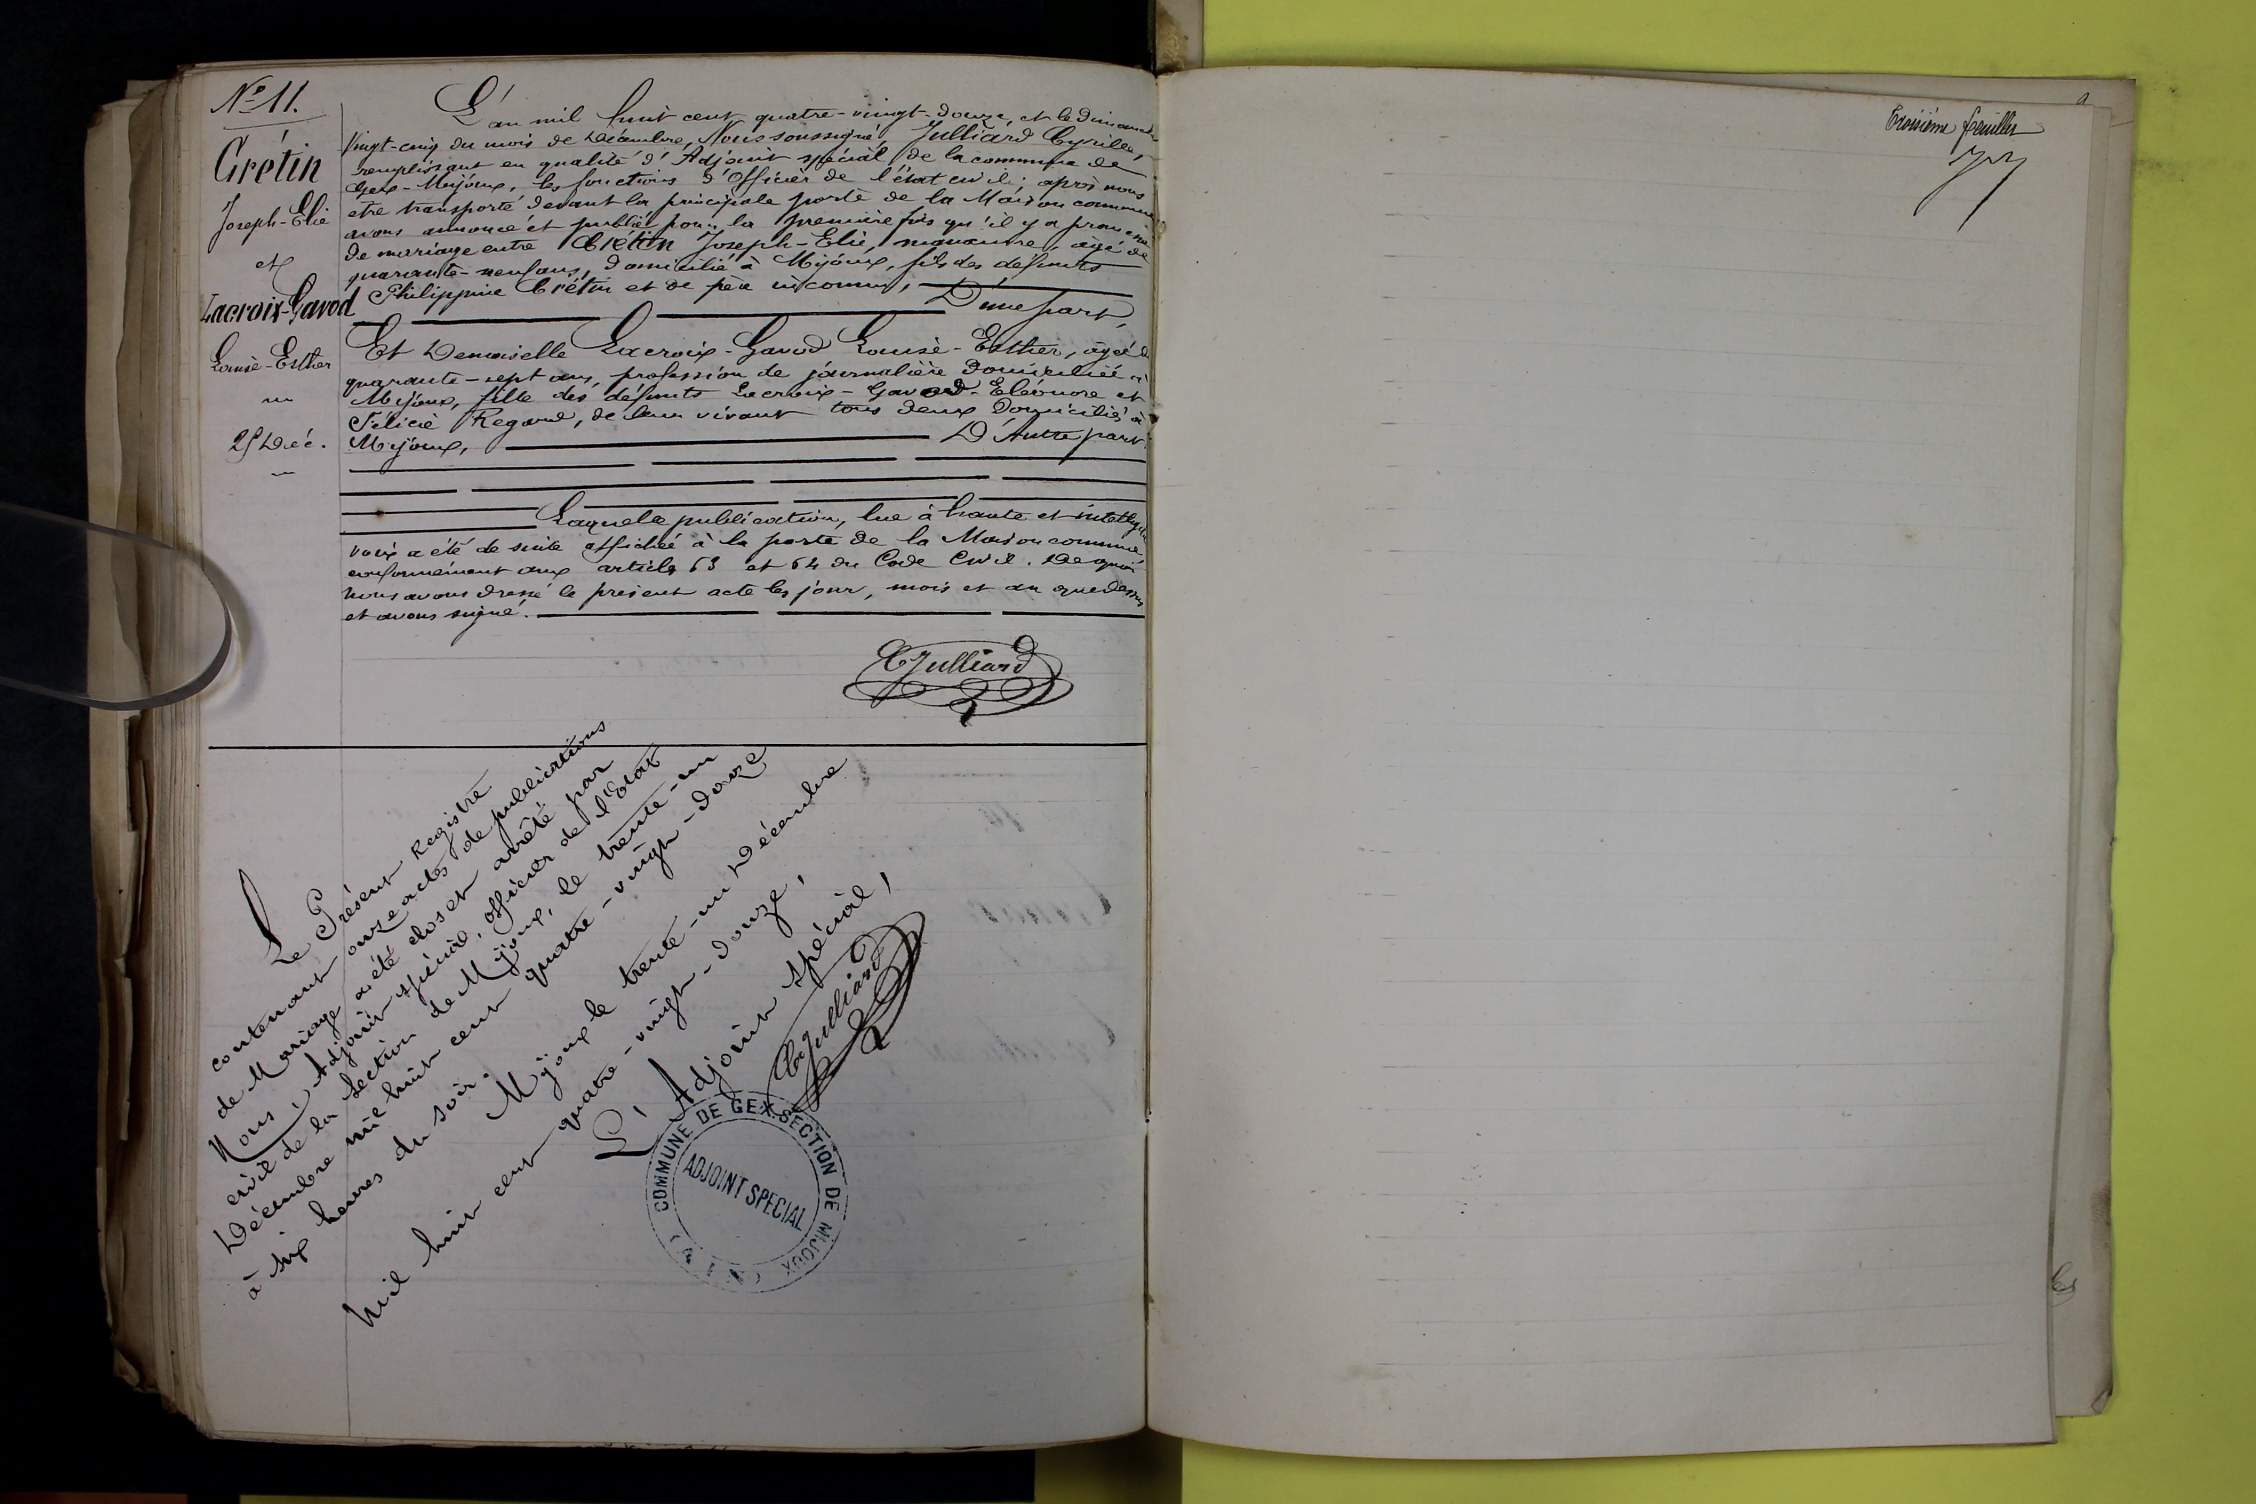 N° 11.
Crétin
Joseph-Elie
et
Lacroix-Gavod
Louise-Esther
25 Déc.
L'an mil huit cent quatre-vingt-douze, et le dimanche
Vingt-cinq du mois de Décembre, Nous soussigné, Julliard Cyrille,
remplissant en qualité d'Adjoint spécial de la commune de
Gex-Mijoux, les fonctions d'Officier de l'état civil; après nous
etre transporté devant la principale porte de la Maison commune
avons annoncé et publié pour la première fois qu'il y a promesse
de mariage entre Crétin Joseph-Elie, manœuvre, âgé de
quarante-neuf ans, domicilié à Mijoux, fils des défunts
Philippine Crétin et de père inconnu,
D'une part,
Et Demoiselle Lacroix-Gavod Louise-Esther, âgée de
quarante-sept ans, profession de journalière domiciliée à
Mijoux, fille des défunts Lacroix-Gavod Eléonore et
Félicie Regard, de leur vivant tous deux domiciliés à
Mijoux, D'Autre part.
Laquelle publication, lue à haute et intelligible
voix a été de suite affichée à la porte de la Maison commune
conformément aux articles 63 et 64 du Code Civil. De quoi
nous avons dressé le présent acte les jour, mois et an que dessus
et avons signé.
CJulliard
Le Présent Registre
contenant onze actes de publications
de Mariage a été clos et arrêté par
Nous, Adjoint spécial, officier de l'Etat
civil de la Section de Mijoux, le trente-un
Décembre mil huit cent quatre-vingt-douze
à six heures du soir.
Mijoux le trente-un Décembre
mil huit cent quatre-vingt-douze,
L'Adjoint spécial,
CJulliard
COMMUNE DE GEX. SECTION DE MIJOUX
(AIN)
ADJOINT SPECIAL
Troisième feuillet